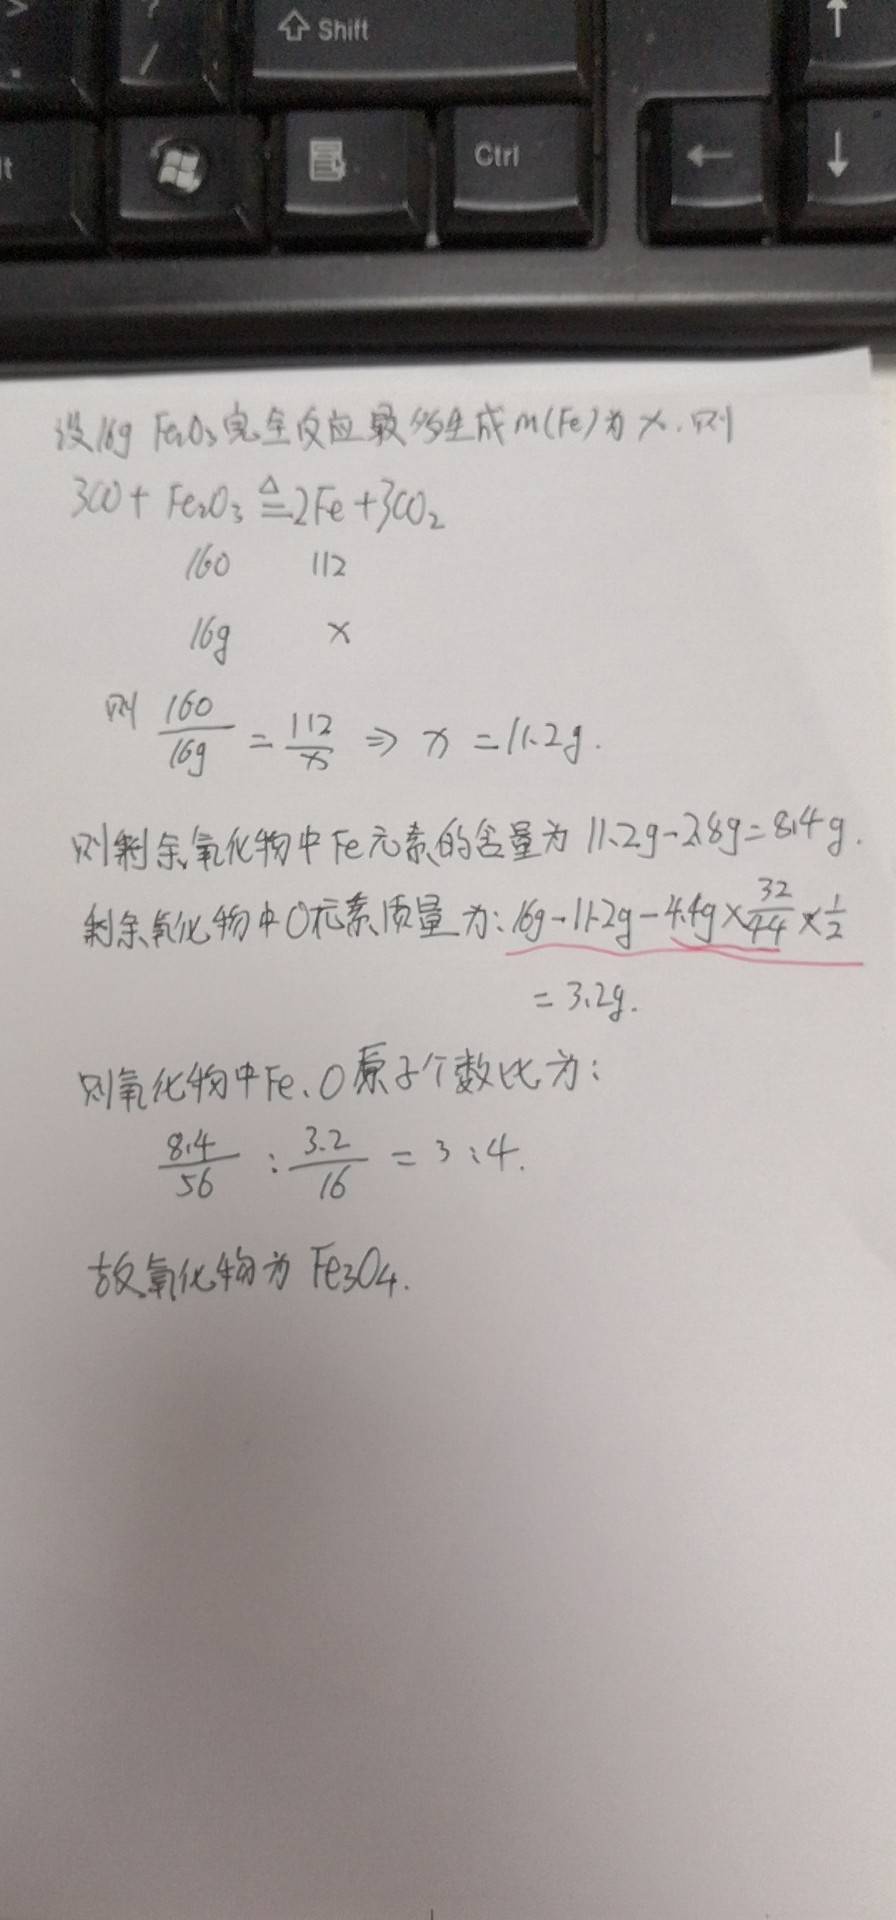 >
.
?
/
Shift
↑
lt
Ctrl
←
↓
设16g Fe₂O₃完全反应最多生成m(Fe)为x.则
3CO+Fe₂O₃ ≜ 2Fe+3CO₂
160 112
16g x
则 160/16g = 112/x ⇒ x = 11.2g.
则剩余氧化物中Fe元素的含量为 11.2g-2.8g=8.4g.
剩余氧化物中O元素质量为:16g-11.2g-4.4g×32/44×1/2
= 3.2g.
则氧化物中Fe、O原子个数比为:
8.4/56 : 3.2/16 = 3:4.
故氧化物为 Fe₃O₄.